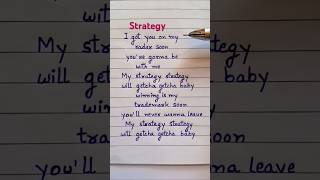 Strategy
I got you on my
radar soon
you're gonna be
with me
My strategy strategy
will getcha getcha baby
winning is my
trademark soon
you'll never wanna leave
My strategy strategy
will getcha getcha baby